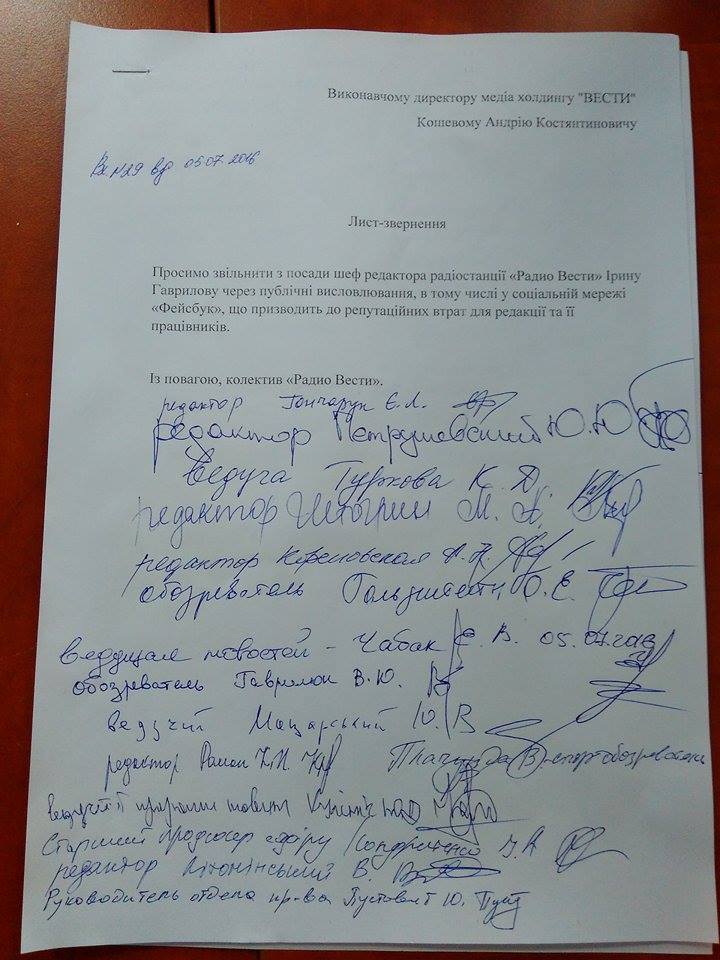 Виконавчому директору медіа холдингу "ВЕСТИ"
Кошевому Андрію Костянтиновичу
Вх №29 від 05.07.2016
Лист-звернення
Просимо звільнити з посади шеф редактора радіостанції «Радио Вести» Ірину
Гаврилову через публічні висловлювання, в тому числі у соціальній мережі
«Фейсбук», що призводить до репутаційних втрат для редакції та її
працівників.
Із повагою, колектив «Радио Вести».
редактор Гончарук Є.Л.
редактор Петрушевский Ю.Ю
Ведуча Туркова К. Д.
редактор М. А.
редактор А.
обозреватель Гольдштейн О. Е.
Ведущая новостей - Чабак Е. В. 05.07.2016
обозреватель Гаврилюк В.Ю.
ведучий Мацарський Ю. В
редактор Роман
Плачинда В. - спортобозреватель
ведучий програми
Старший продюсер эфіру Кондратенко
редактор В.
Руководитель отдела Пустовит Ю.